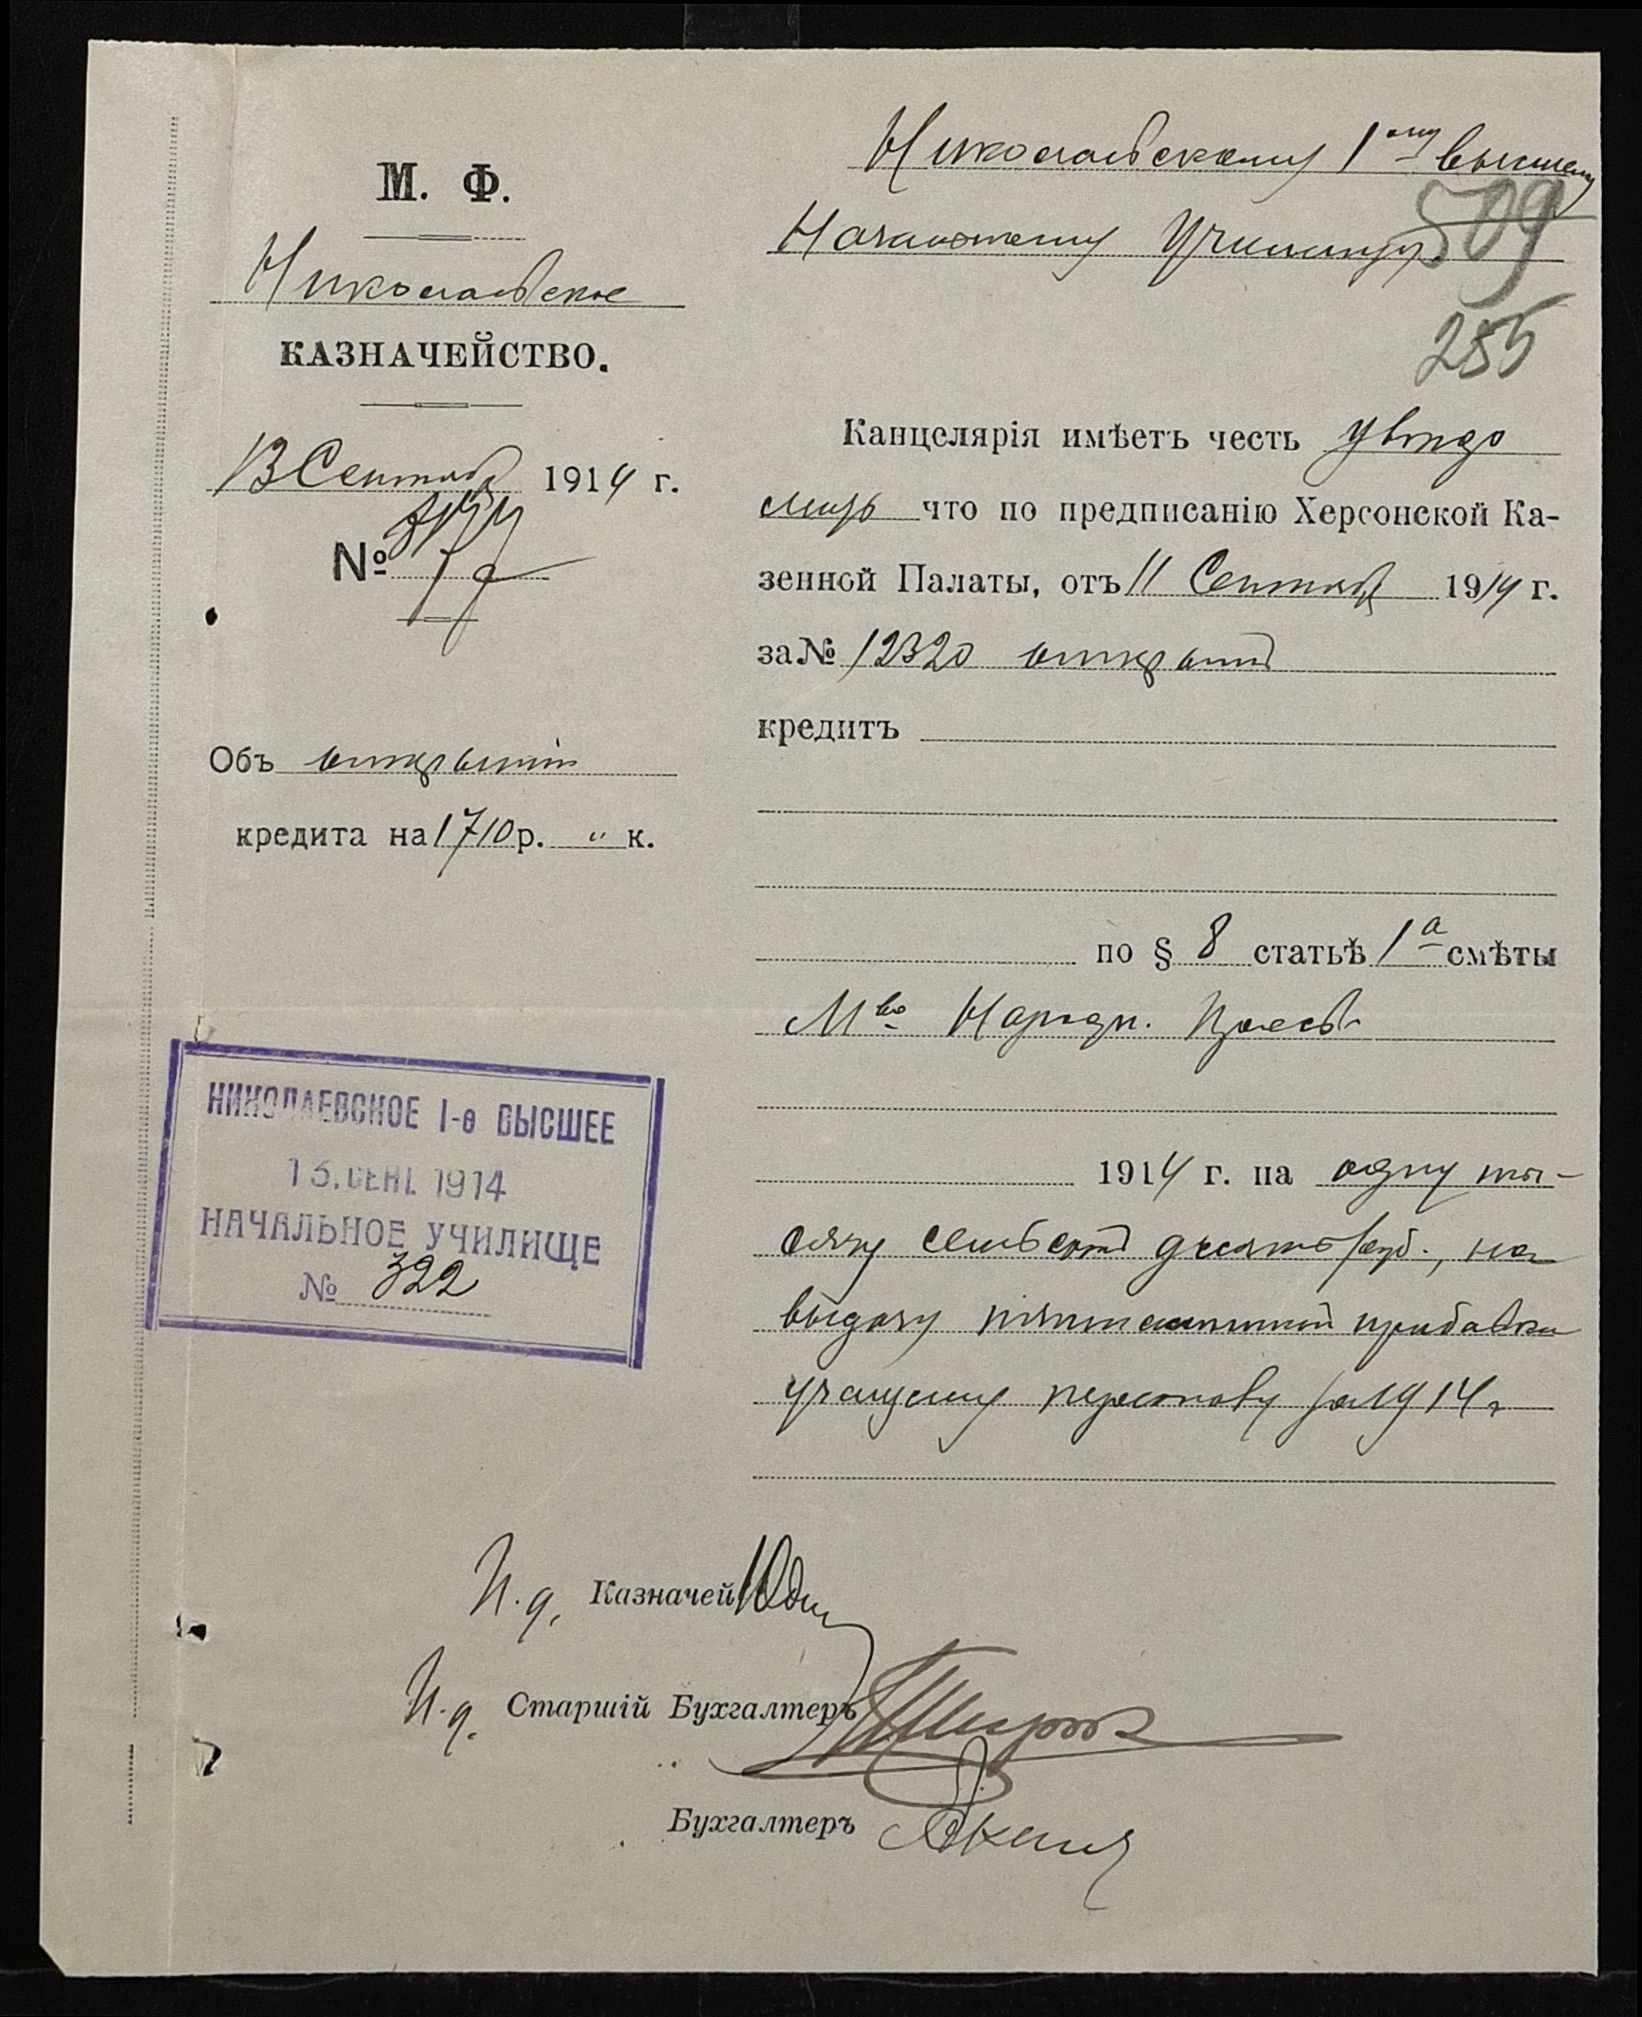 М. Ф.
Николаевское
КАЗНАЧЕЙСТВО.
13 Сентяб 1914 г.
№
Объ открытіи
кредита на 1710 р. " к.
НИКОЛАЕВСКОЕ 1-е ВЫСШЕЕ
13. СЕН. 1914
НАЧАЛЬНОЕ УЧИЛИЩЕ
№ 322
Николаевскому 1ому высшему
Начальному Училищу.
509
255
Канцелярія имѣетъ честь увѣдо
мить что по предписанію Херсонской Ка-
зенной Палаты, отъ 11 Сентяб 1914 г.
за № 12320 открытъ
кредитъ
по § 8 статьѣ 1а смѣты
Мва Народн. Просв.
1914 г. на одну ты-
сячу семьсотъ десять руб., на
выдачу пятилѣтней прибавки
учащему персоналу за 1914 г
И. д. Казначей
И. д. Старшій Бухгалтеръ
Бухгалтеръ